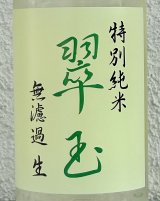 特別純米
翠玉
無濾過生